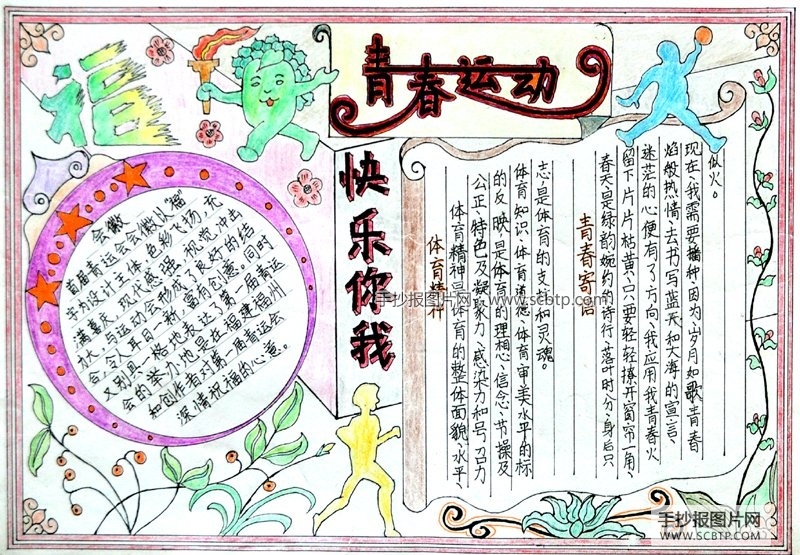 福
青春运动
快乐你我
会徽
首届青运会会徽以“福”
字为设计主体、色彩飞扬、充
满喜庆、现代感强、视觉冲击
力大、与运动会形成了良好的结
合、令人耳目一新、富有创意。同时
又别具一格地表达了第一届青运
会的举办地是在福建福州
和创作者对第一届青运会
深情祝福的心意。
体育精神
体育精神是体育的整体面貌、水平、
公正、特色及凝聚力、感染力和号召力
的反映、是体育的理想、信念、节操及
体育知识、体育道德、体育审美水平的标
志、是体育的支柱和灵魂。
青春寄语
春天、是绿韵婉约的诗行、落叶时分、身后只
留下片片枯黄、只要轻轻撩开窗帘一角、
迷茫的心便有了方向、我应用我青春火
焰般热情、去书写蓝天和大海的宣言、
现在、我需要播种、因为、岁月如歌青春
似火。
手抄报图片网 www.scbtp.com
手抄报图片网
WWW.SCBTP.COM